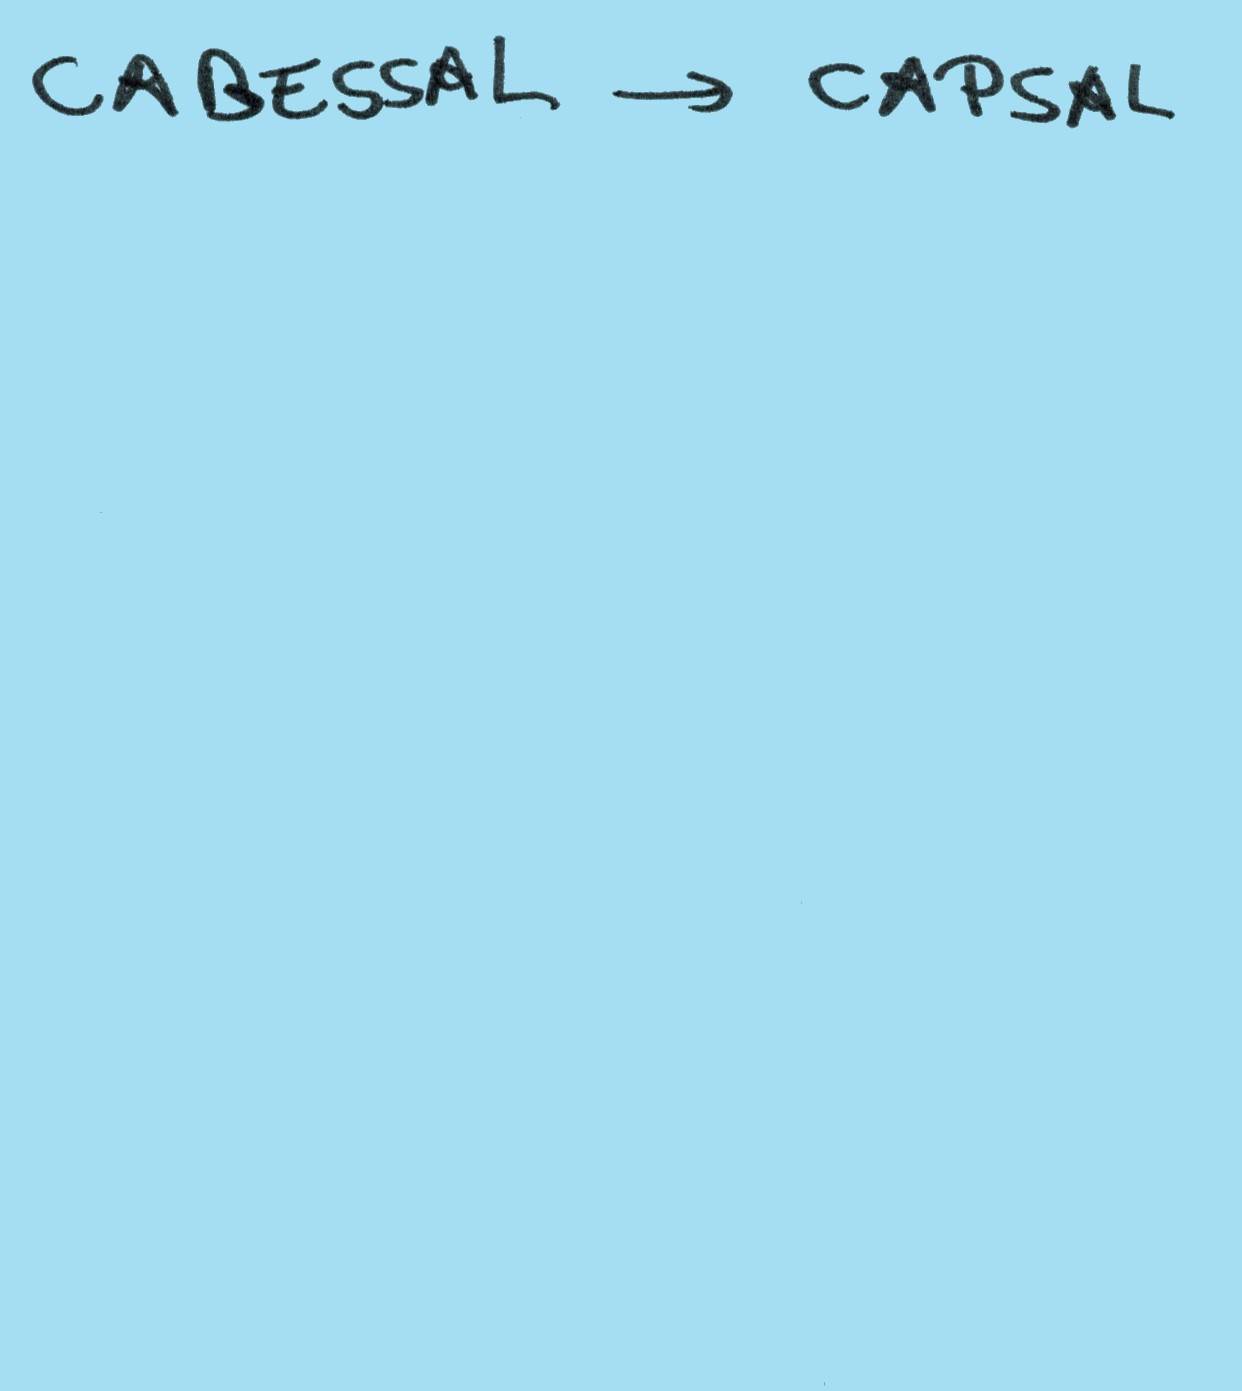 CABESSAL → CAPSAL